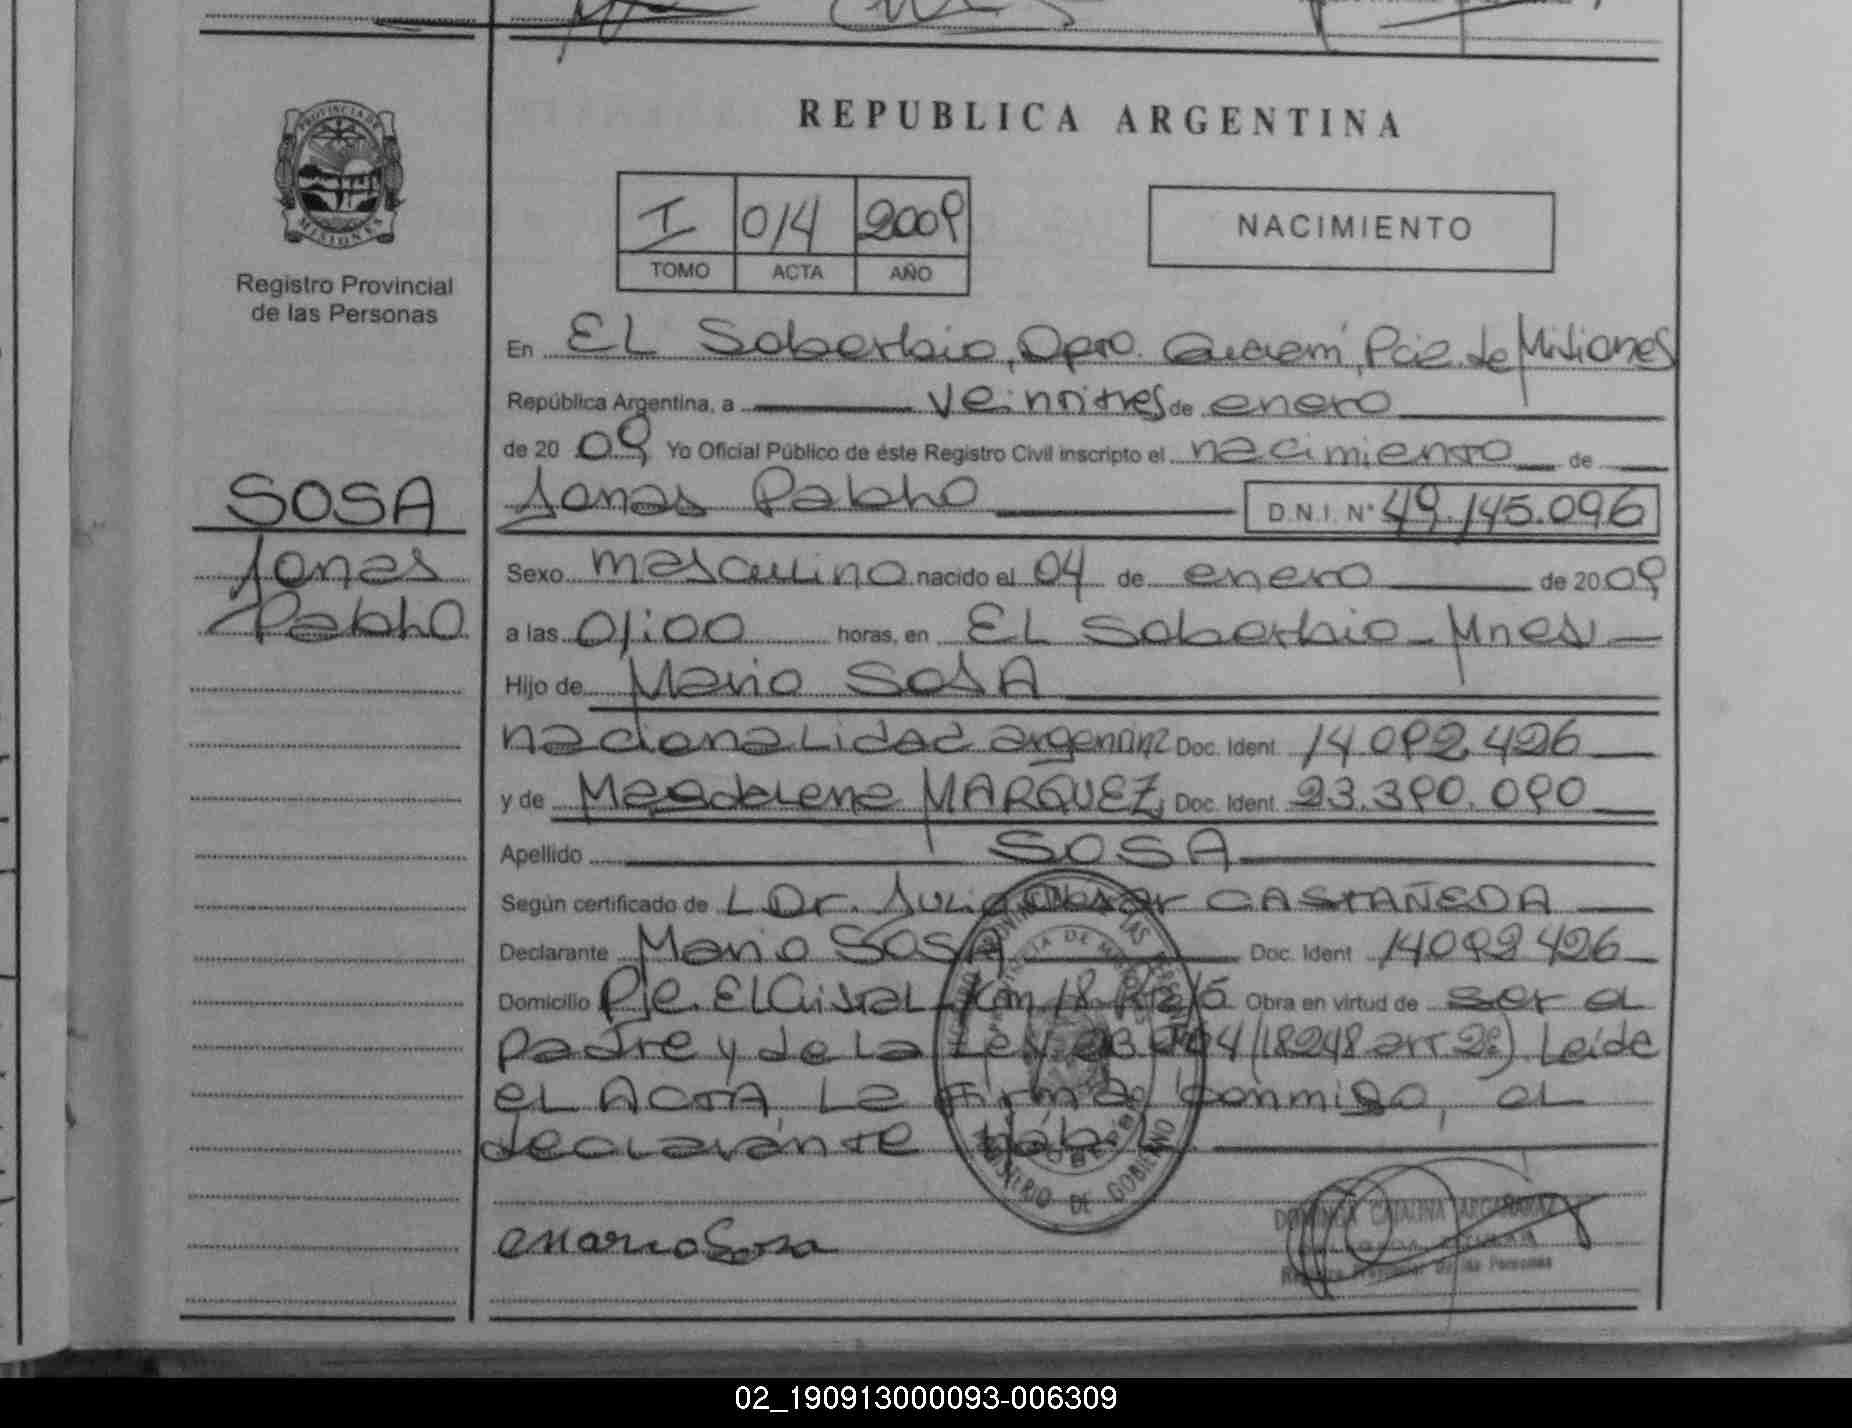 PROVINCIA DE
MISIONES
Registro Provincial
de las Personas
SOSA
Jonas
Pablo
REPUBLICA ARGENTINA
I 014 2009
TOMO ACTA AÑO
NACIMIENTO
En EL Soberbio, Dpto. Guaraní, Pcie. de Misiones
República Argentina, a veintitres de enero
de 20 09 Yo Oficial Público de éste Registro Civil inscripto el nacimiento de
Jonas Pablo D.N.I. N° 49.145.096
Sexo masculino nacido el 04 de enero de 20 09
a las 01:00 horas, en EL Soberbio - Mnes
Hijo de Mario SOSA
nacionalidad argentina Doc. Ident. 14.092.426
y de Magdalena MARQUEZ, Doc. Ident. 23.390.090
Apellido SOSA
Según certificado de L Dr. Julio Cesar CASTAÑEDA
Declarante Mario SOSA Doc. Ident 14092426
Domicilio Pje. El Cristal - Km. 18 Obra en virtud de ser el
padre y de la Ley (18248 art 2º). Leída
el ACTA, La firma conmigo, el
declarante hábil.
Mario Sosa
DOMINGA CATALINA ARGAÑARAZ
Registro Provincial de las Personas
MINISTERIO DE GOBIERNO
02_190913000093-006309